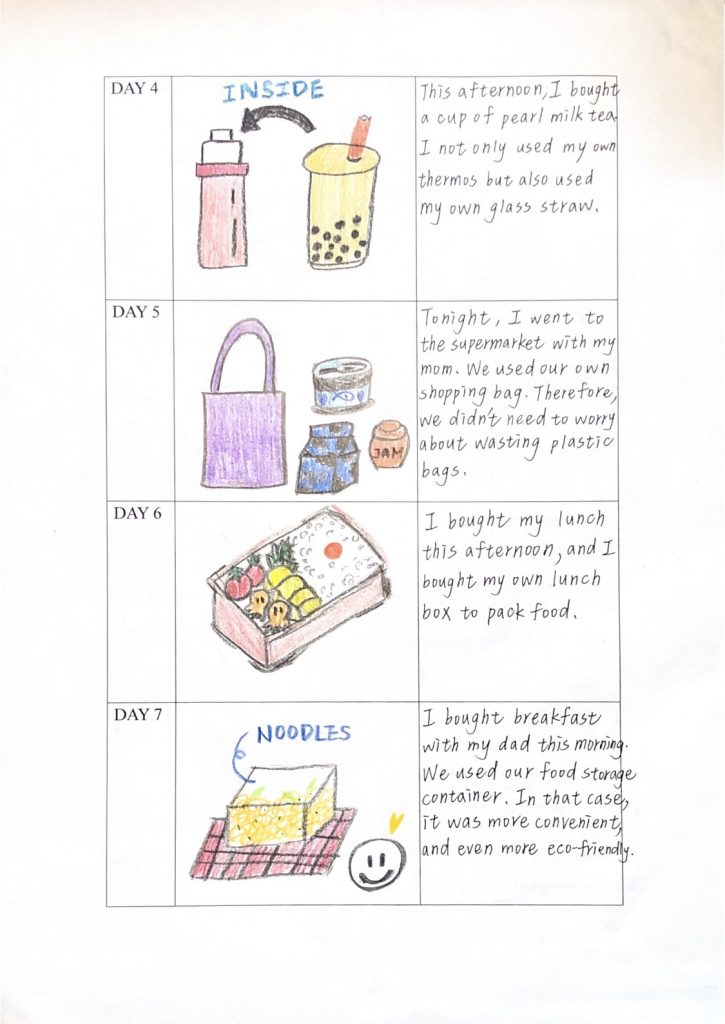 DAY 4
INSIDE
This afternoon, I bought
a cup of pearl milk tea.
I not only used my own
thermos but also used
my own glass straw.
DAY 5
JAM
Tonight, I went to
the supermarket with my
mom. We used our own
shopping bag. Therefore,
we didn't need to worry
about wasting plastic
bags.
DAY 6
I bought my lunch
this afternoon, and I
bought my own lunch
box to pack food.
DAY 7
NOODLES
I bought breakfast
with my dad this morning.
We used our food storage
container. In that case,
it was more convenient,
and even more eco-friendly.